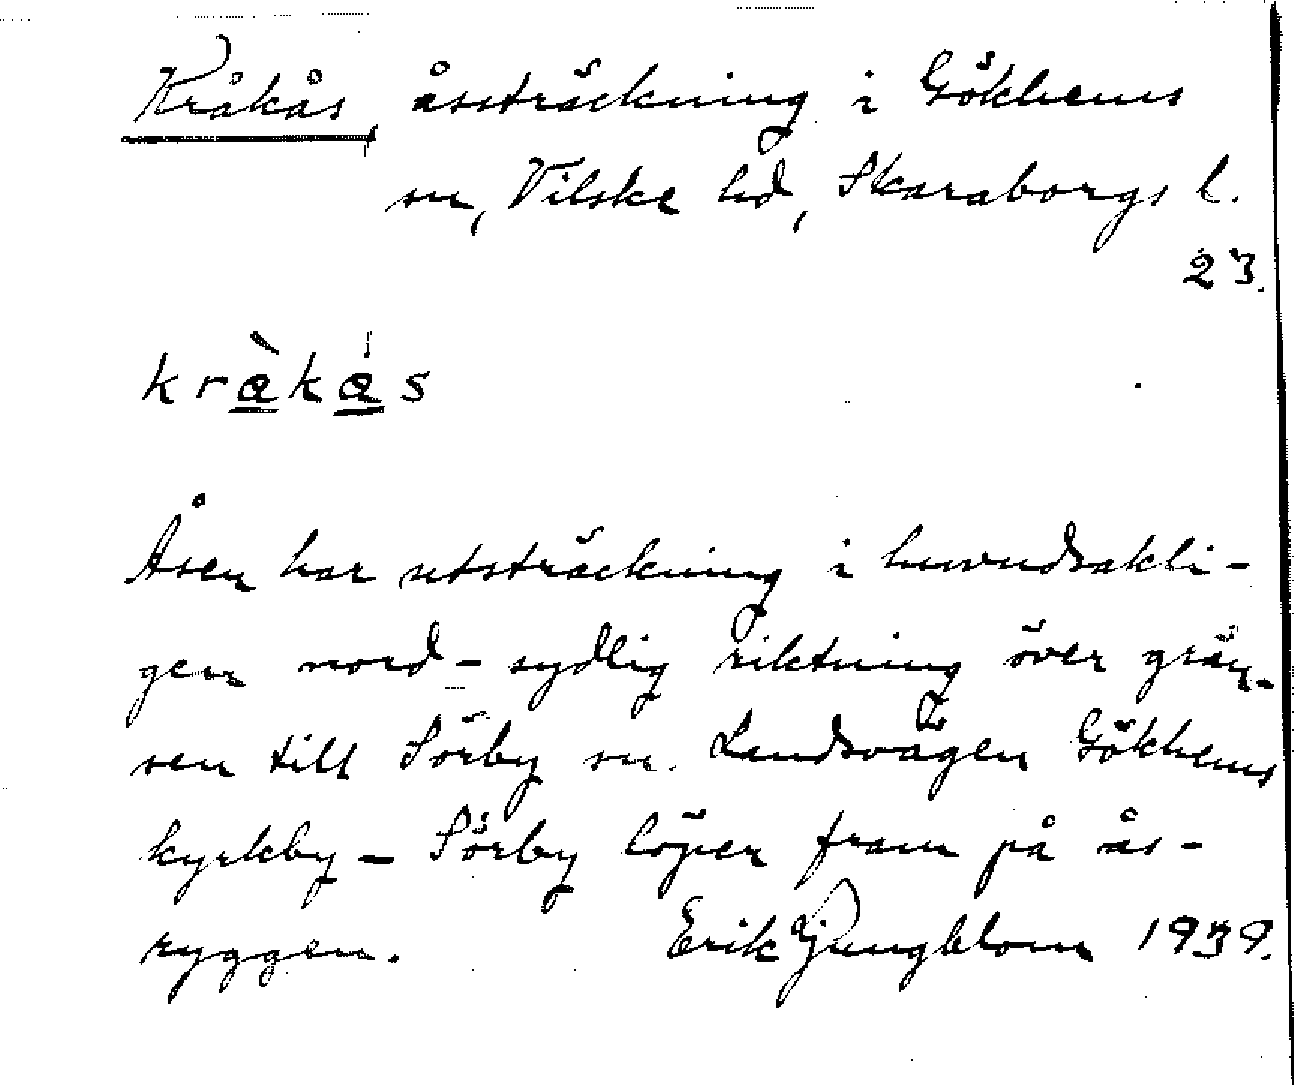 Kråkås åssträckning i Gökhems
sn, Vilske hd, Skaraborgs l.
23.
kræ̲̀kǽ̲s
Åsen har utsträckning i huvudsakli-
gen nord-sydlig riktning över grän-
sen till Sörby sn. Landsvägen Gökhems
kyrkby - Sörby löper fram på ås-
ryggen. Erik Ljungblom 1939.